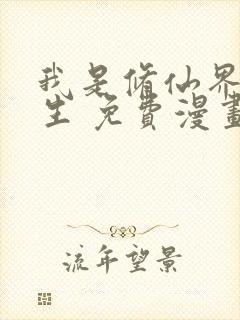 我是修仙界
生 免費漫畫
流年望景